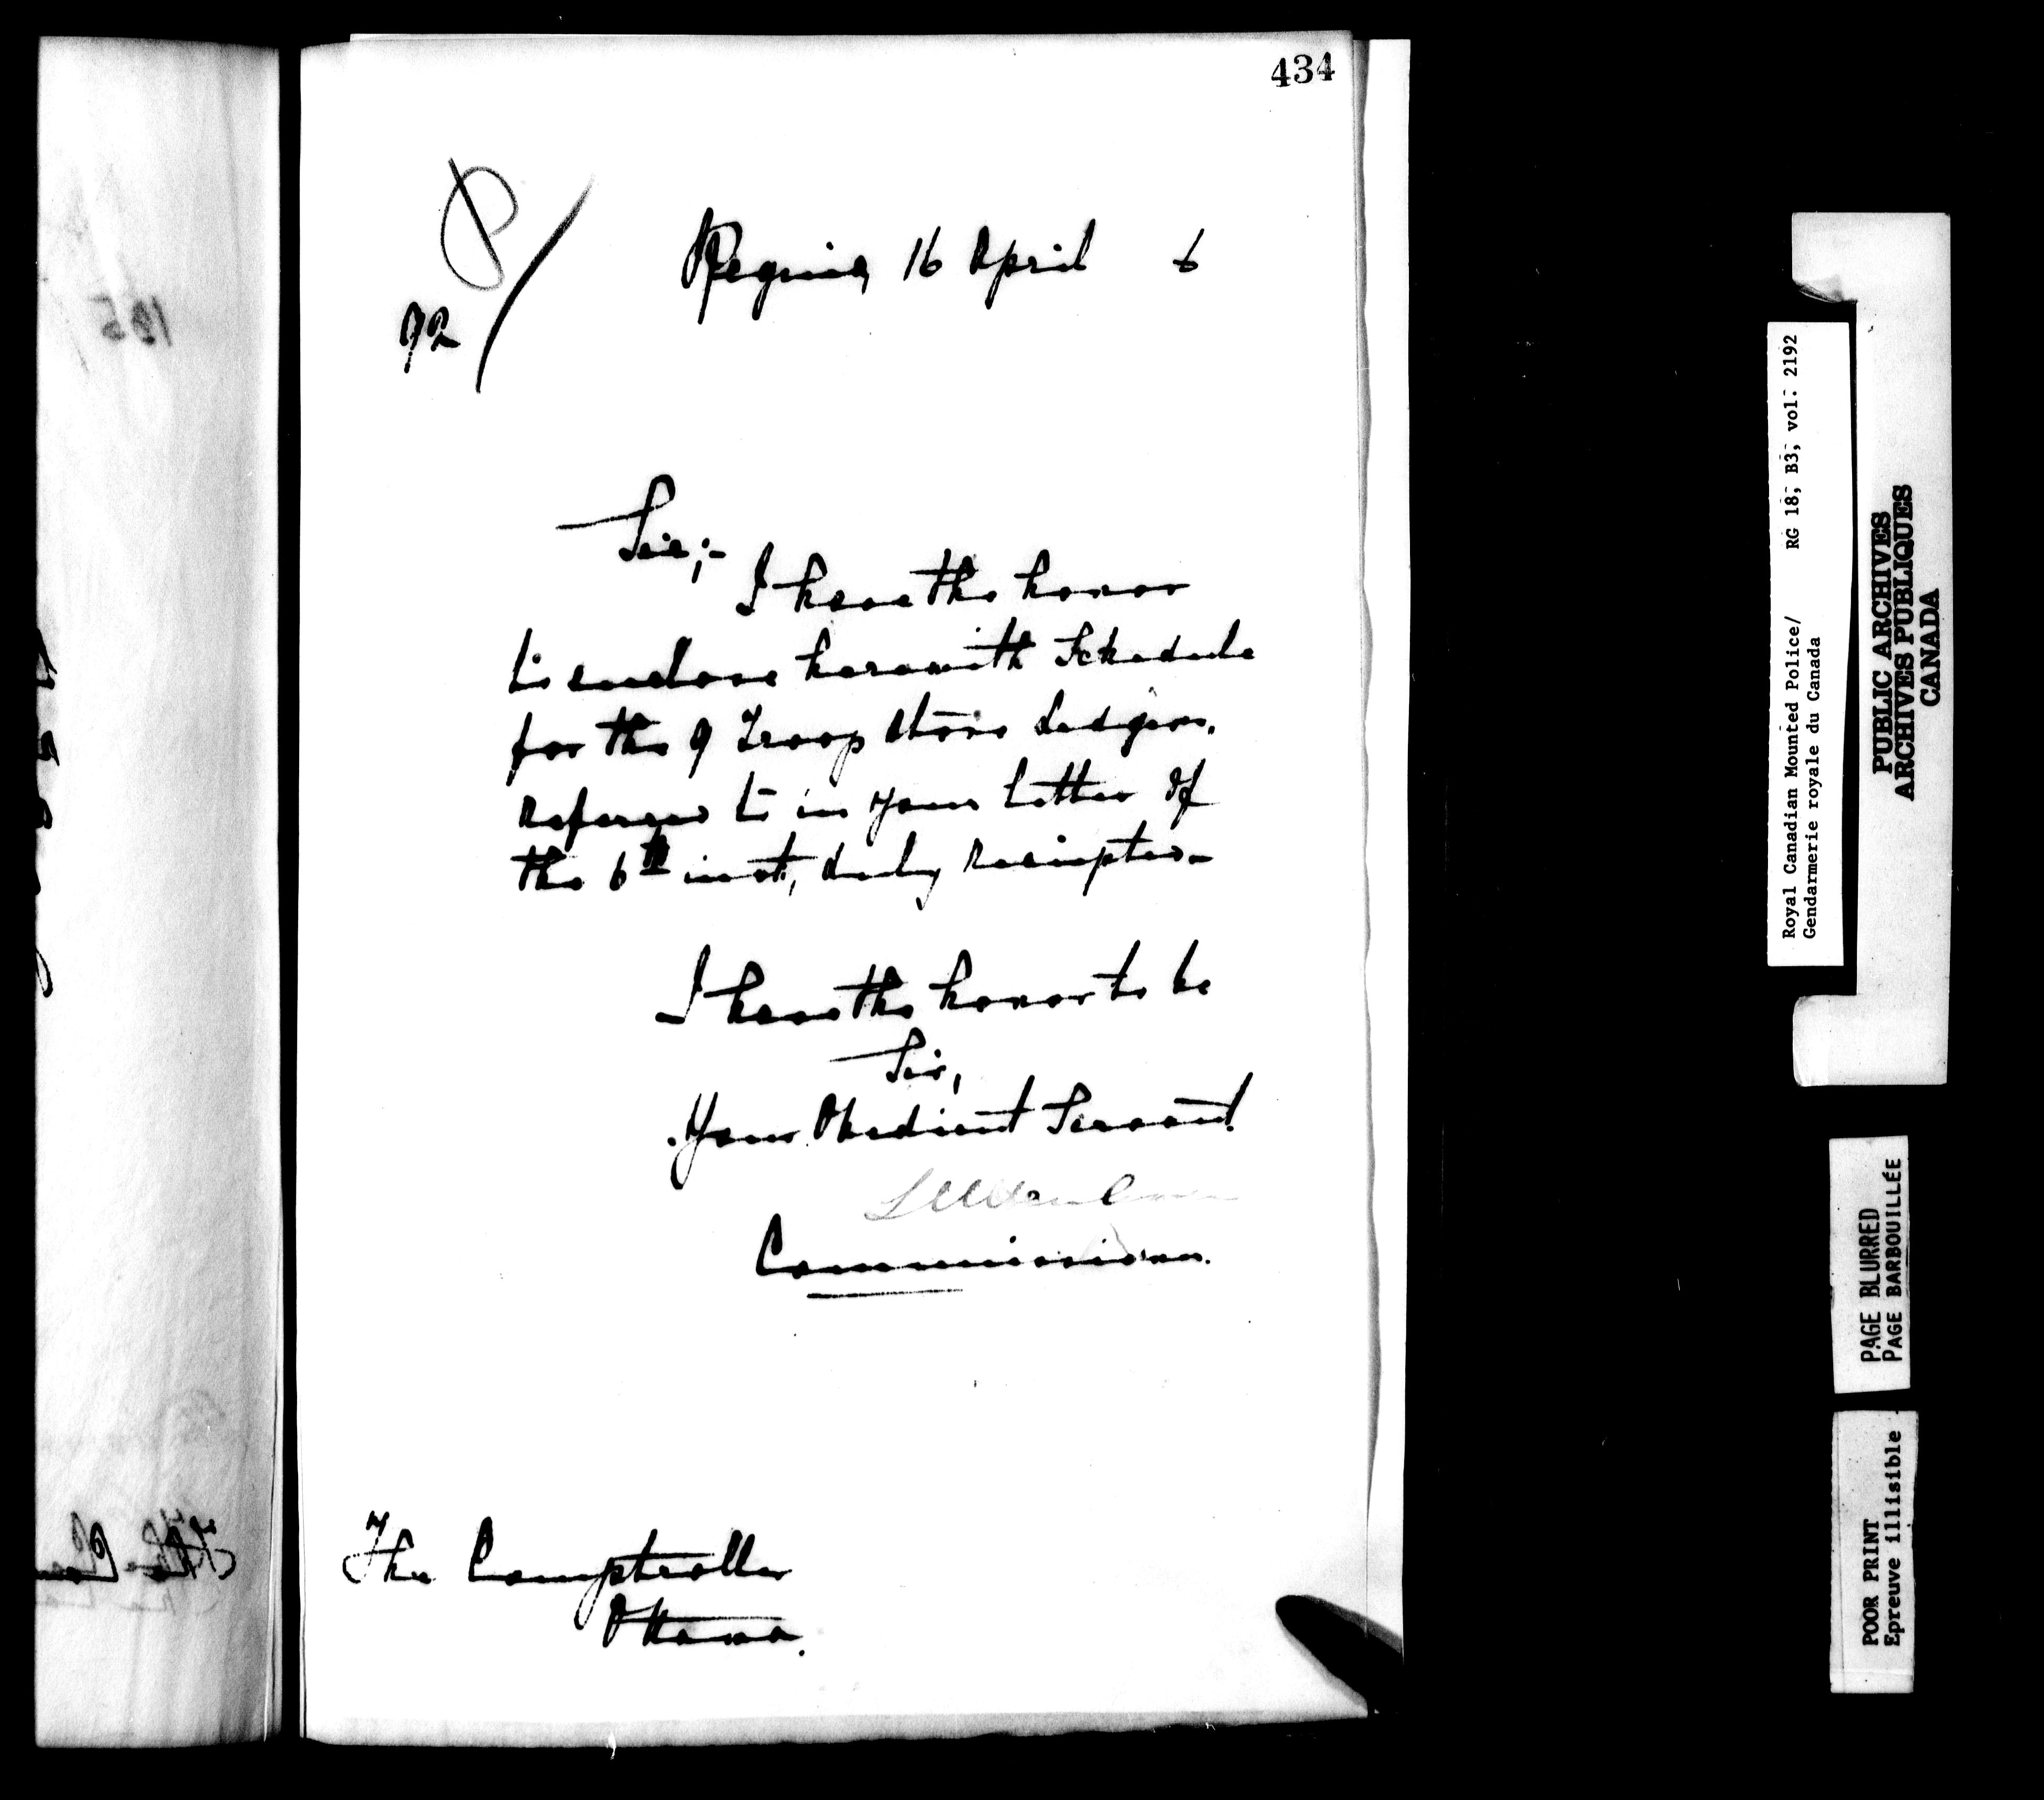 434
Regina, 16 April 6
92
Sir;-
I have the honor
to enclose herewith Schedule
for the 9 Troop Store Ledgers,
referred to in your letter of
the 6th inst, duly receipted-
I have the honor to be
Sir,
Your Obedient Servant
Commissioner.
The Comptroller
Ottawa.
Royal Canadian Mounted Police/ RG 18, B3, vol. 2192
Gendarmerie royale du Canada
PUBLIC ARCHIVES
ARCHIVES PUBLIQUES
CANADA
PAGE BLURRED
PAGE BARBOUILLÉE
POOR PRINT
Epreuve illisible